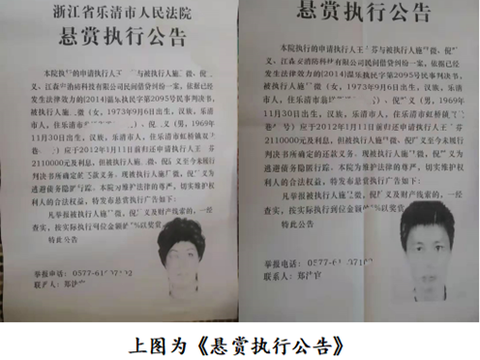 浙江省乐清市人民法院
悬赏执行公告
本院执行的申请执行人王 芬与被执行人施 微、倪
义、江森 消防科技有限公司民间借贷纠纷一案，依据已经
发生法律效力的(2014)温乐执民字第2095号民事判决书，
被执行人施 微（女，1973年9月6日出生，汉族，乐清
市人，住乐清市 ）、倪 义（男，1969年
11月30日出生，汉族，乐清市人，住乐清市虹桥镇
巷 号）应于2012年1月11日前归还申请执行人王 芬
2110000元及利息，但被执行人施 微、倪 义至今未履行
判决书所确定的还款义务。现被执行人施 微、倪 义为
逃避债务隐匿行踪。本院为维护法律的尊严，切实维护权
利人的合法权益，特发布悬赏执行广告如下：
凡举报被执行人施 微、倪 义及财产线索的，一经
查实，按实际执行到位金额的 %以奖赏。
特此公告
举报电话：0577-61
联系人：郑
悬赏执行公告
本院执行的申请执行人王 芬与被执行人施 微、倪
义、江森 消防科技有限公司民间借贷纠纷一案，依据已经
发生法律效力的(2014)温乐执民字第2095号民事判决书，
被执行人施 微（女，1973年9月6日出生，汉族，乐清
市人，住乐清市 ）、倪 义（男，1969年
11月30日出生，汉族，乐清市人，住乐清市虹桥镇
巷 号）应于2012年1月11日前归还申请执行人王 芬
2110000元及利息，但被执行人施 微、倪 义至今未履行
判决书所确定的还款义务。现被执行人施 微、倪 义为
逃避债务隐匿行踪。本院为维护法律的尊严，切实维护权
利人的合法权益，特发布悬赏执行广告如下：
凡举报被执行人施 微、倪 义及财产线索的，一经
查实，按实际执行到位金额的 %以奖赏。
特此公告
举报电话：0577-61
联系人：郑
上图为《悬赏执行公告》